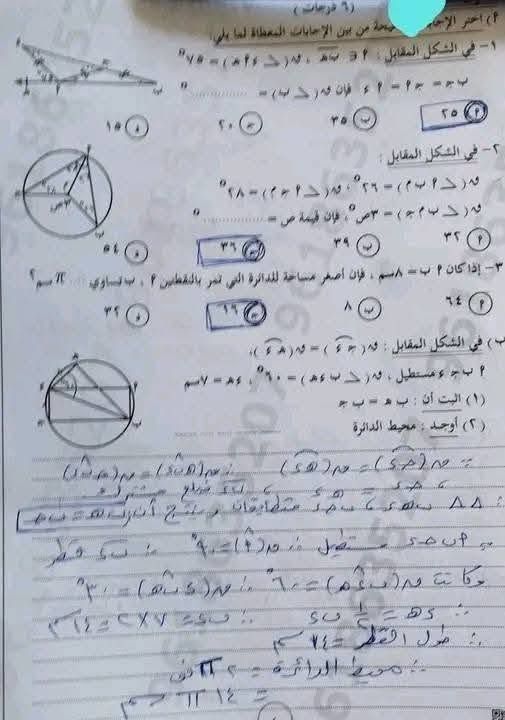 (٦ درجات)
٢) اختر الإجابة الصحيحة من بين الإجابات المعطاة لما يلي:
١- في الشكل المقابل : ٢ ∈ ب هـ ، ق(∠ ء٢هـ) = ٧٥°
ب جـ = جـ ٢ = ٢ ء فإن ق(∠ ب) = ............°
أ ٢٥ ب ٣٥ جـ ٢٠ د ١٥
٢- في الشكل المقابل :
ق(∠ ٢ ب م) = ٢٦° ، ق(∠ ٢ جـ م) = ٢٨°
ق(∠ ب م جـ) = ٣ص° ، فإن قيمة ص = ............°
أ ٣٢ ب ٣٩ جـ ٣٦ د ٥٤
٣- إذا كان ٢ ب = ٨سم ، فإن أصغر مساحة للدائرة التي تمر بالنقطتين ٢ ، ب تساوي ..... π سم²
أ ٦٤ ب ٨ جـ ١٦ د ٣٢
ب) في الشكل المقابل : ق(جـ ء) = ق(هـ ء) ،
٢ ب جـ ء مستطيل ، ق(∠ ب ء هـ) = ٦٠° ، ء هـ = ٧سم
(١) اثبت أن : ب هـ = ب جـ
(٢) أوجد : محيط الدائرة
∵ ق(جـ ء) = ق(هـ ء) ∴
، جـ ء = هـ ء ، ب ء ضلع مشترك
∴ △△ ب هـ ء ، ب جـ ء متطابقان وينتج أن ب هـ = ب جـ
∵ ٢ ب جـ ء مستطيل ∴ ق(٢) = ٩٠° ∴ ب ء قطر
وكانت ق(ب ء هـ) = ٦٠° ∴ ق(ء ب هـ) = ٣٠°
∴ ء هـ = ١/٢ ب ء ∴ ب ء = ٧×٢ = ١٤سم
∴ طول القطر = ١٤ سم
∴ محيط الدائرة = ٢ π نق
= ١٤ π سم